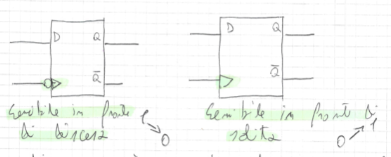 D Q
Q̅
D Q
Q̅
sensibile in fronte
di discesa
1
0
sensibile in fronte di
salita
0 1